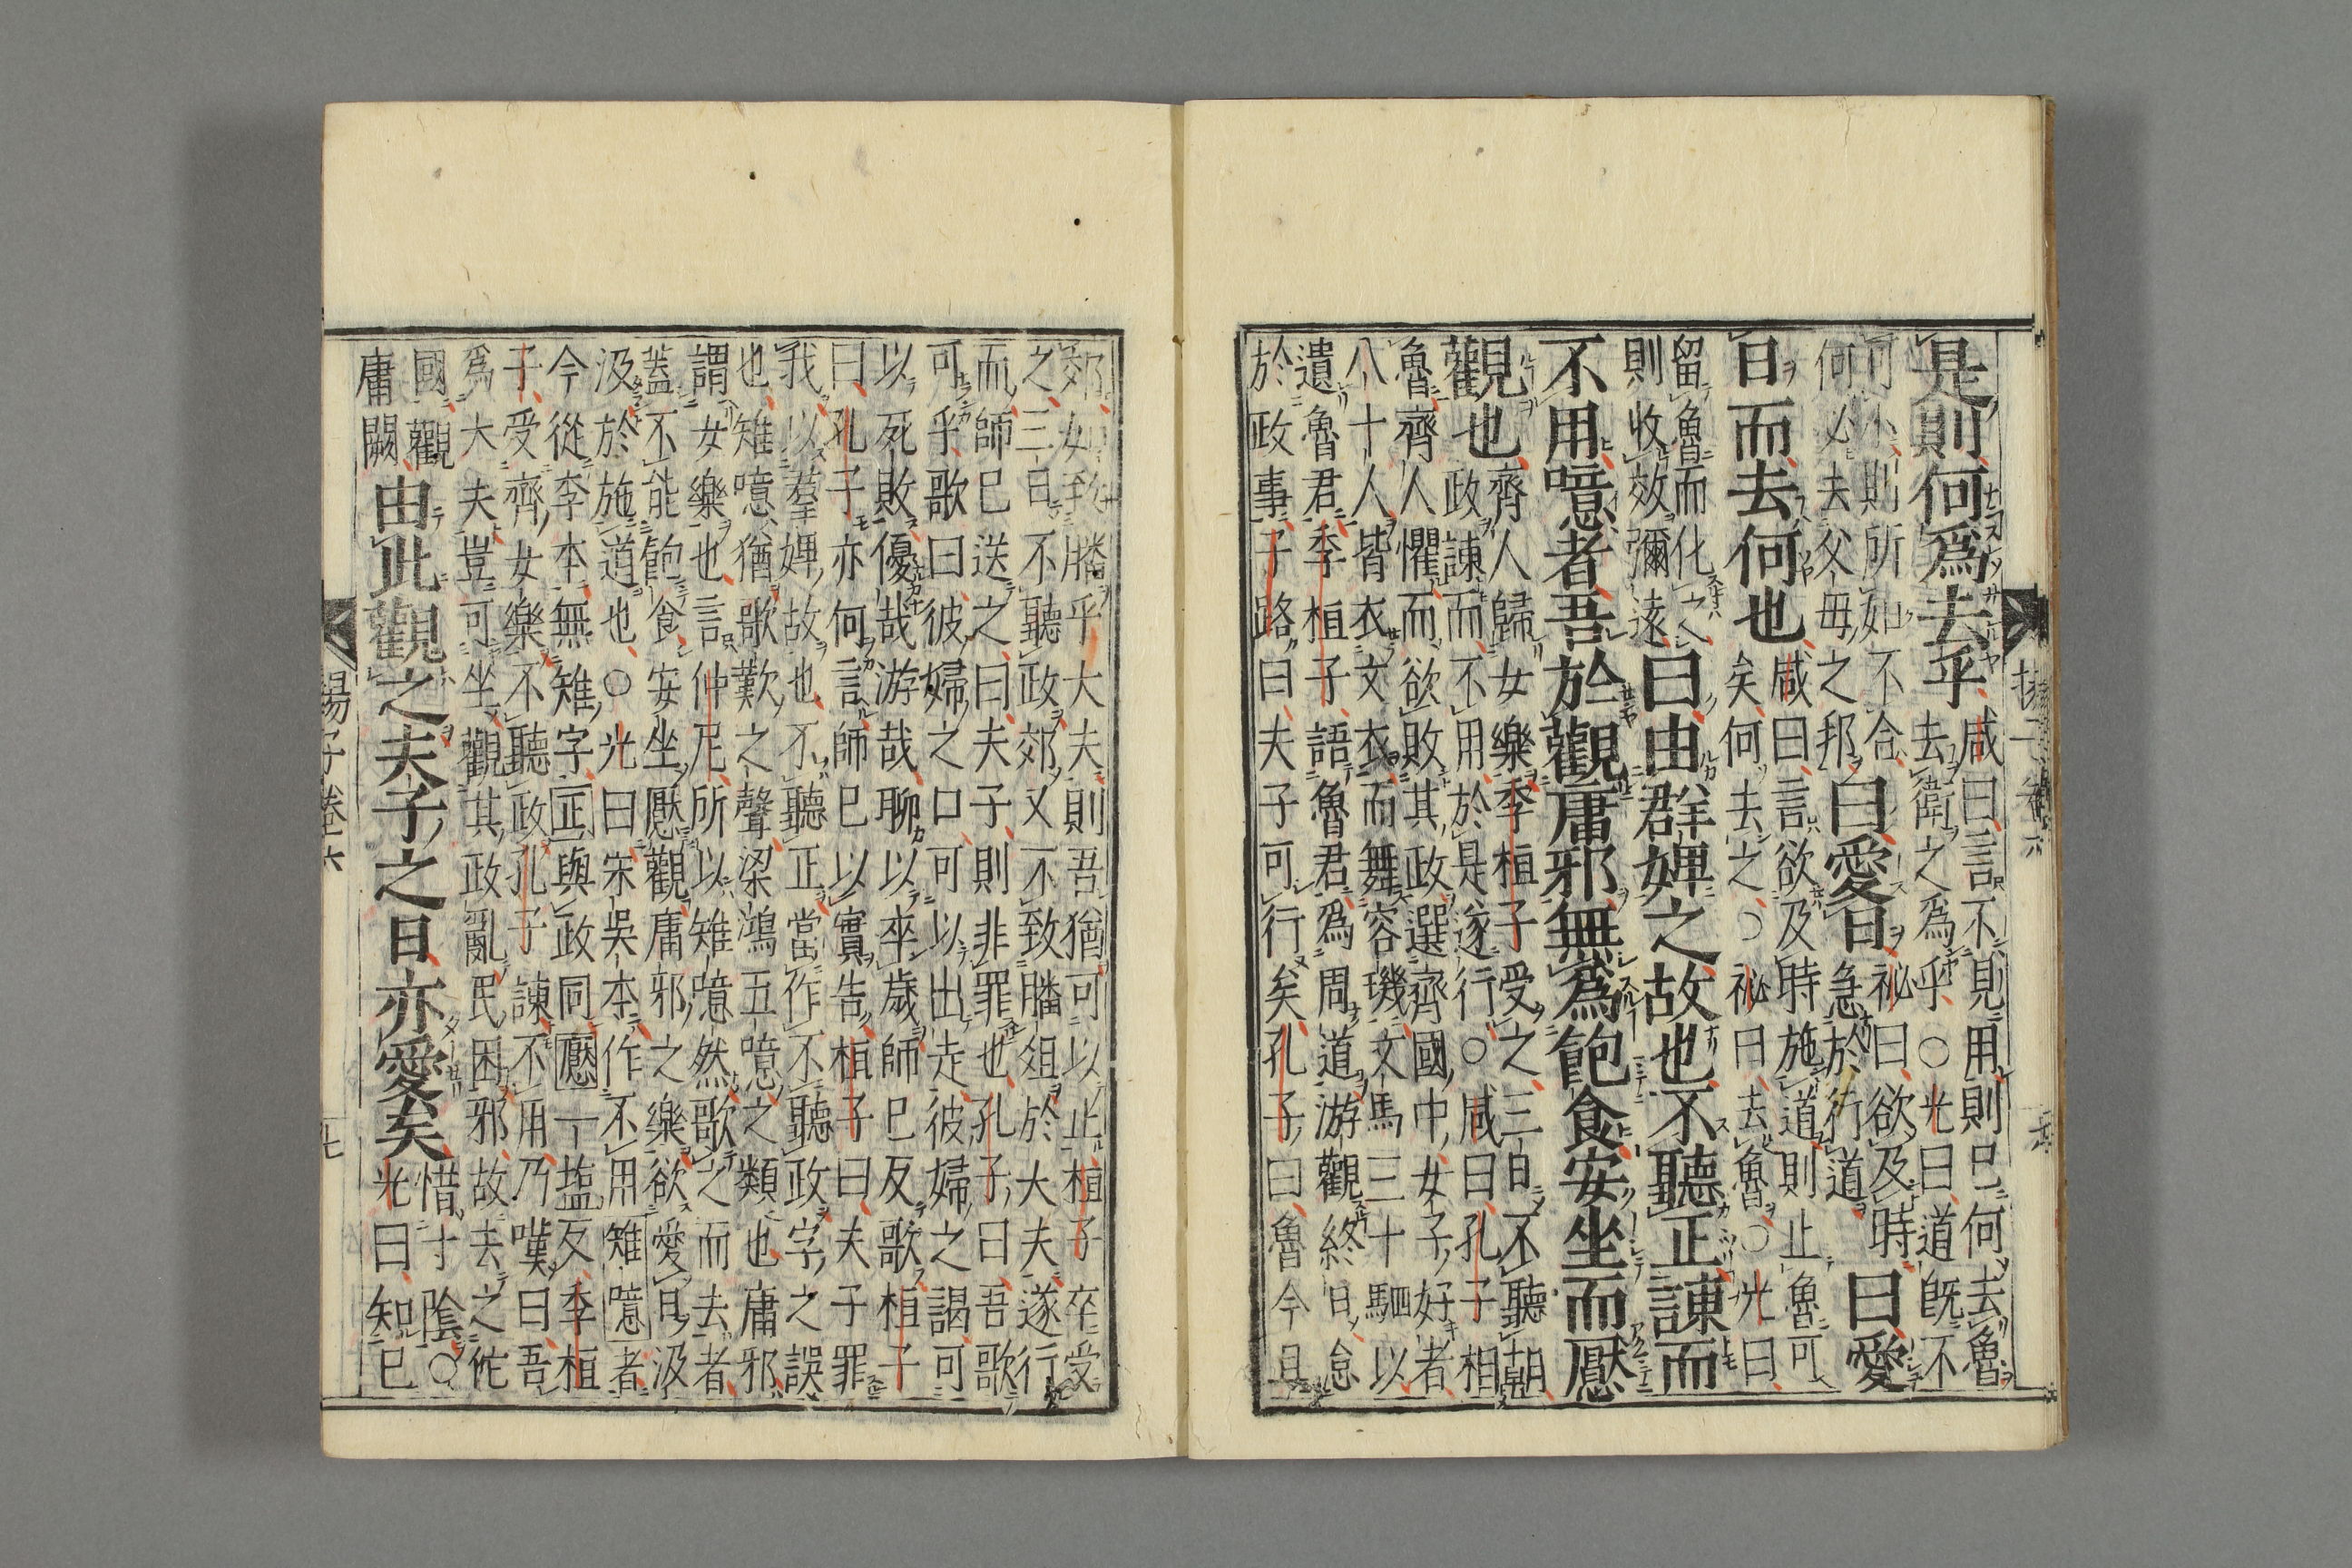 是則何爲去乎咸曰言不見用則已何去魯
去衛之爲乎○光曰道既不
可小則所如不合
何必去父母之邦曰愛日祕曰欲及時
急於行道曰愛
日而去何也咸曰言欲及時施道則止魯可
矣何去之○祕曰去魯○光曰
留魯而化之
則收效彌遠曰由群婢之故也不聽正諫而
不用噫者吾於觀庸邪無爲飽食安坐而厭
觀也齊人歸女樂季桓子受之三日不聽朝
政諫而不用於是遂行○咸曰孔子相
魯齊人懼而欲敗其政選齊國中女子好者
八十人皆衣文衣而舞容璣文馬三十駟以
遺魯君季桓子語魯君爲周道游觀終日怠
於政事子路曰夫子可行矣孔子曰魯今且
郊如致膰乎大夫則吾猶可以止桓子卒受
之三日不聽政郊又不致膰俎於大夫遂行
而師已送之曰夫子則非罪也孔子曰吾歌
可乎歌曰彼婦之口可以出走彼婦之謁可
以死敗優哉游哉聊以卒歲師已反歌桓子
曰孔子亦何言師已以實告桓子曰夫子罪
我以羣婢故也不聽正當作不聽政字之誤
也雉噫猶歌歎之聲梁鴻五噫之類也庸邪
謂女樂也言仲尼所以雉噫然歌之而去者
蓋不能飽食安坐厭觀庸邪之樂欲愛日汲
汲於施道也○光曰宋吳本作不用雉噫者
今從李本無雉字正與政同厭一塩反季桓
子受齊女樂不聽政孔子諫不用乃嘆曰吾
爲大夫豈可坐觀其政亂民困邪故去之佗
國觀
庸闕由此觀之夫子之日亦愛矣惜寸陰○
光曰知已
揚子卷六